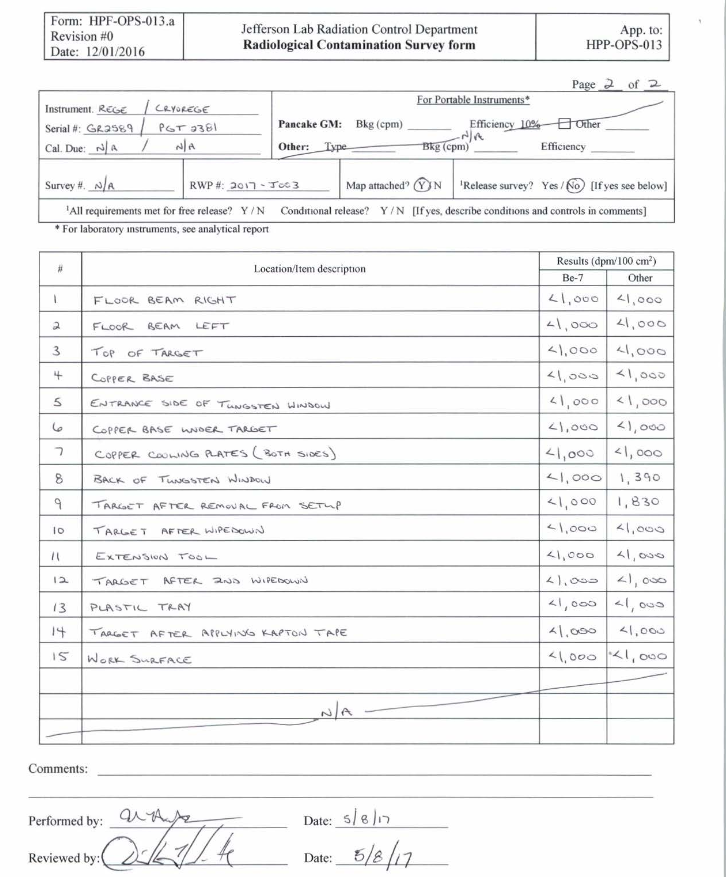 Form: HPF-OPS-013.a
Revision #0
Date: 12/01/2016
Jefferson Lab Radiation Control Department
Radiological Contamination Survey form
App. to:
HPP-OPS-013
Page 2 of 2
Instrument. REGE / CRYOREGE
Serial #: GR2589 / PGT 2381
Cal. Due: N/A / N/A
For Portable Instruments*
Pancake GM: Bkg (cpm) Efficiency 10% Other
N/A
Other: Type Bkg (cpm) Efficiency
Survey #. N/A
RWP #: 2017-J003
Map attached? Y/N
¹Release survey? Yes / No [If yes see below]
¹All requirements met for free release? Y / N Conditional release? Y / N [If yes, describe conditions and controls in comments]
* For laboratory instruments, see analytical report
# Location/Item description Results (dpm/100 cm²)
Be-7 Other
1 FLOOR BEAM RIGHT <1,000 <1,000
2 FLOOR BEAM LEFT <1,000 <1,000
3 TOP OF TARGET <1,000 <1,000
4 COPPER BASE <1,000 <1,000
5 ENTRANCE SIDE OF TUNGSTEN WINDOW <1,000 <1,000
6 COPPER BASE UNDER TARGET <1,000 <1,000
7 COPPER COOLING PLATES (BOTH SIDES) <1,000 <1,000
8 BACK OF TUNGSTEN WINDOW <1,000 1,390
9 TARGET AFTER REMOVAL FROM SETUP <1,000 1,830
10 TARGET AFTER WIPEDOWN <1,000 <1,000
11 EXTENSION TOOL <1,000 <1,000
12 TARGET AFTER 2ND WIPEDOWN <1,000 <1,000
13 PLASTIC TRAY <1,000 <1,000
14 TARGET AFTER APPLYING KAPTON TAPE <1,000 <1,000
15 WORK SURFACE <1,000 <1,000
N/A
Comments:
Performed by: Date: 5/8/17
Reviewed by: Date: 5/8/17